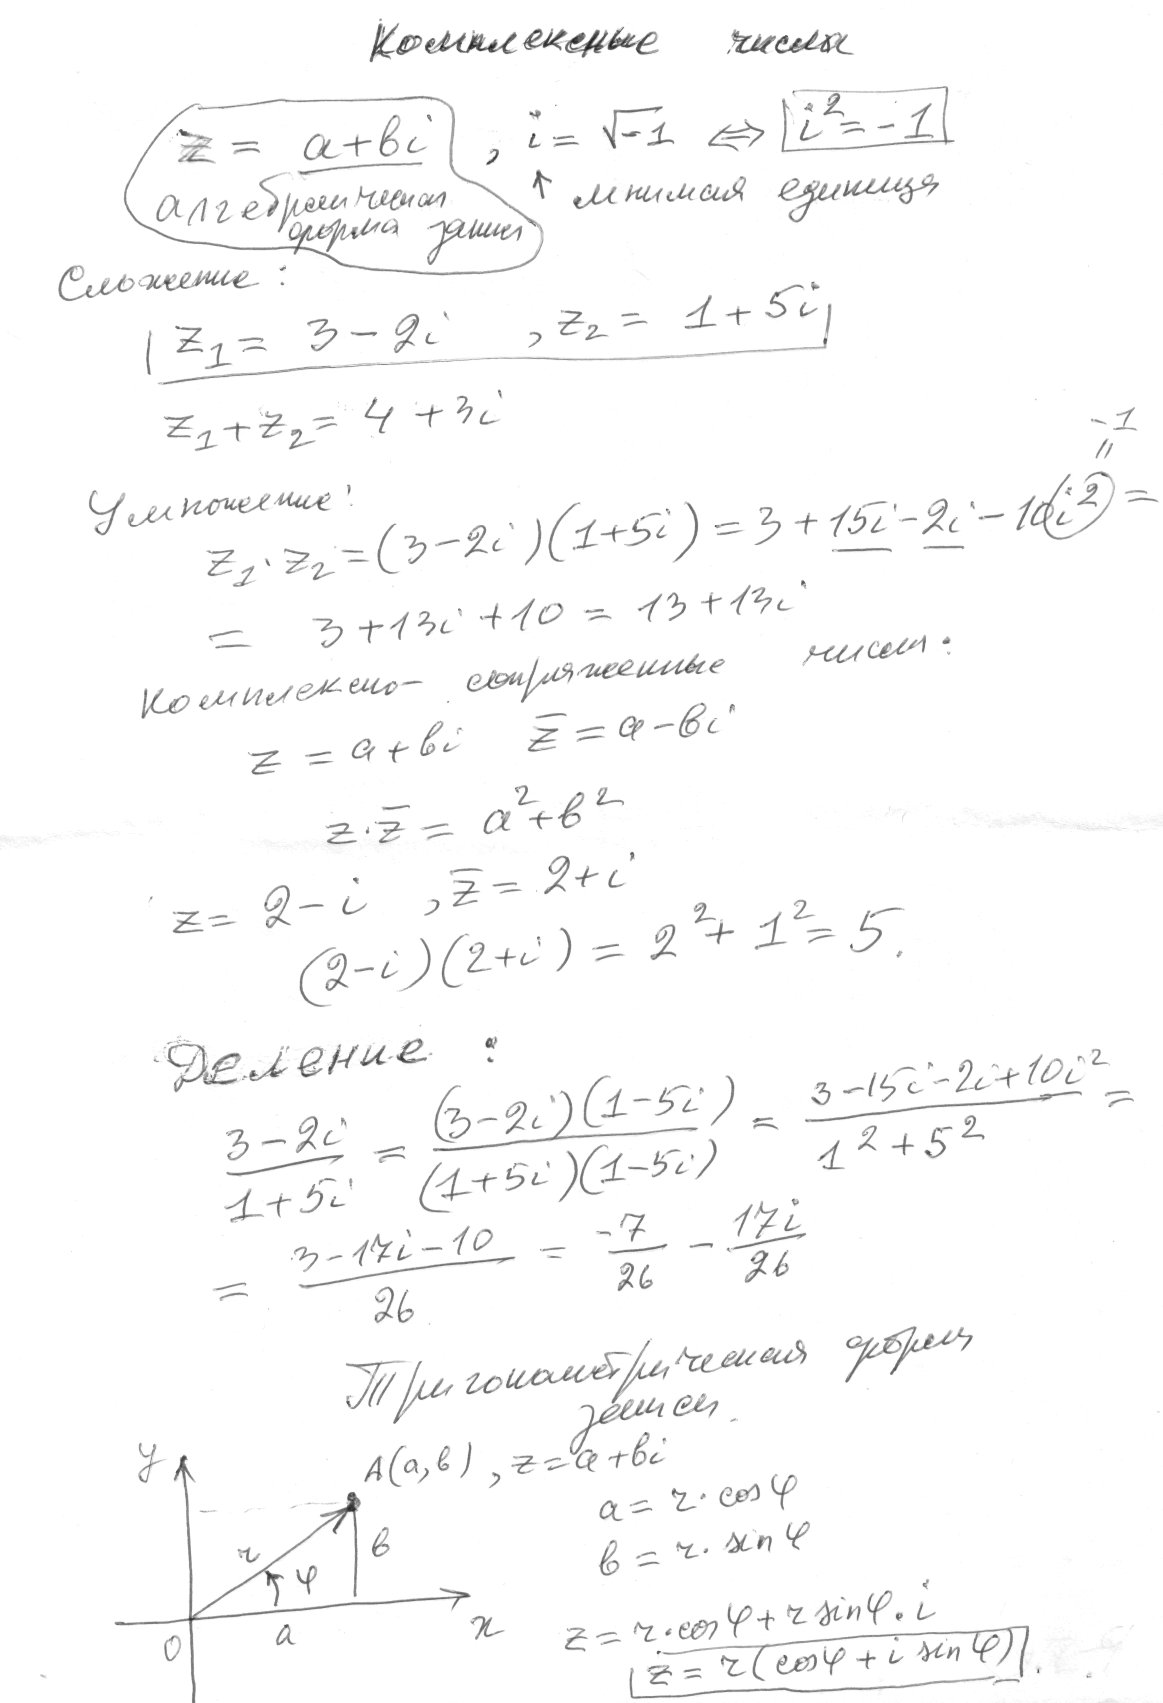 Комплексные числа
z = a+bi , i = √-1 ⇔ i² = -1
алгебраическая
форма записи
↑ мнимая единица
Сложение:
z₁ = 3 - 2i , z₂ = 1 + 5i
z₁ + z₂ = 4 + 3i
-1
"
Умножение:
z₁·z₂ = (3-2i)(1+5i) = 3 + 15i - 2i - 10i² =
= 3 + 13i + 10 = 13 + 13i
Комплексно-сопряженные числа:
z = a+bi z̅ = a-bi
z·z̅ = a² + b²
z = 2 - i , z̅ = 2 + i
(2-i)(2+i) = 2² + 1² = 5.
Деление:
(3-2i)/(1+5i) = ((3-2i)(1-5i))/((1+5i)(1-5i)) = (3-15i-2i+10i²)/(1²+5²) =
= (3-17i-10)/26 = -7/26 - 17i/26
Тригонометрическая форма
записи.
y
A(a,b) , z = a+bi
a = r·cosφ
b
b = r·sinφ
r
φ
0
a
x
z = r·cosφ + r sinφ·i
z = r(cosφ + i sinφ).